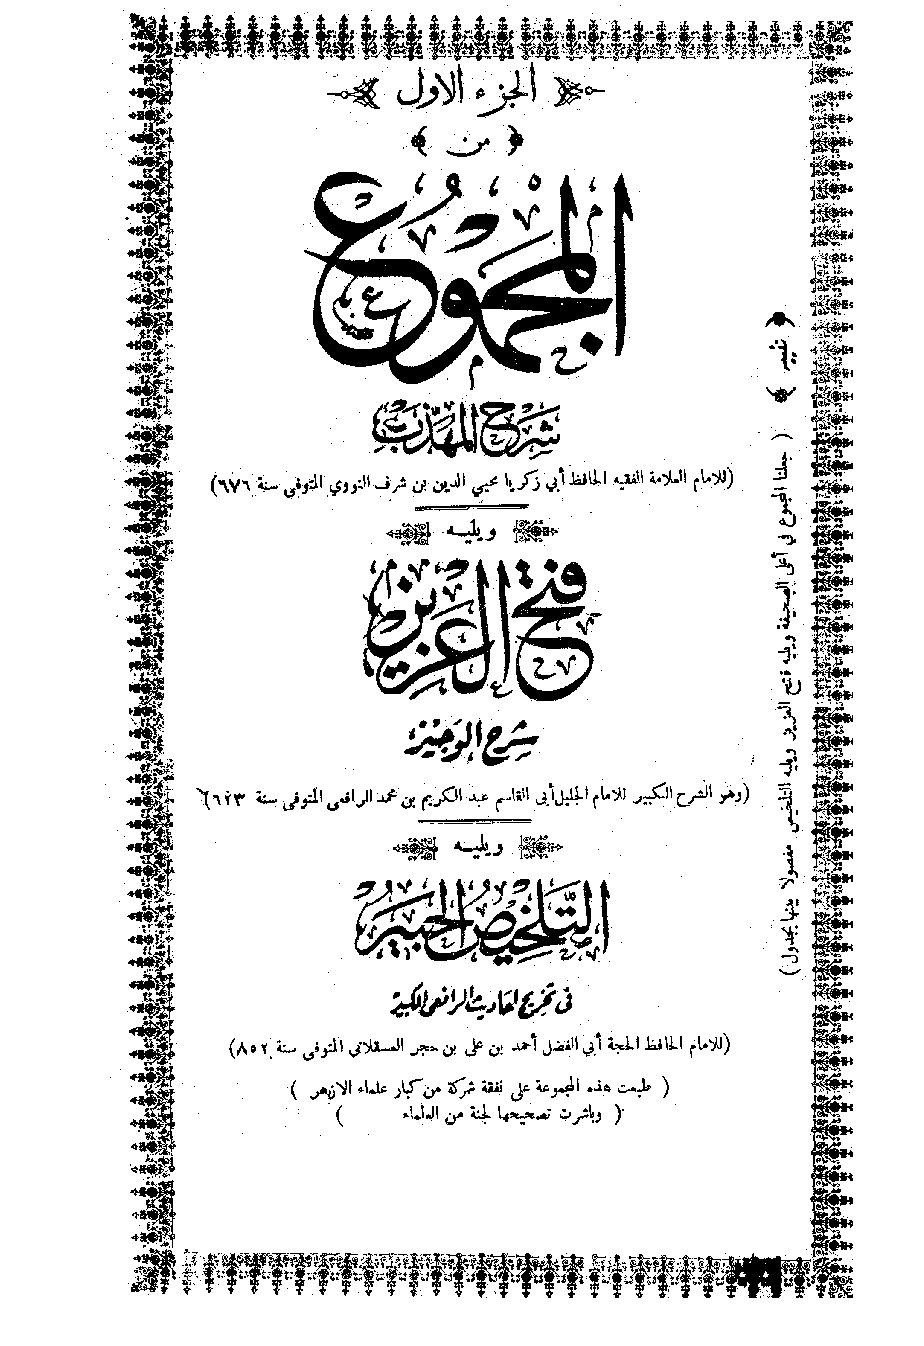 الجزء الاول
من
المجموع
شرح المهذب
(للامام العلامة الفقيه الحافظ أبي زكريا محيي الدين بن شرف النووي المتوفى سنة ٦٧٦)
ويليه
فتح العزيز
شرح الوجيز
(وهو الشرح الكبير للامام الجليل أبي القاسم عبد الكريم بن محمد الرافعي المتوفى سنة ٦٢٣)
ويليه
التلخيص الحبير
في تخريج احاديث الرافعي الكبير
(للامام الحافظ الحجة أبي الفضل أحمد بن على بن حجر العسقلاني المتوفى سنة ٨٥٢)
( طبعت هذه المجموعة على نفقة شركة من كبار علماء الازهر )
( وباشرت تصحيحها لجنة من العلماء )
تنبيه
( جعلنا المجموع في أعلى الصحيفة ويليه فتح العزيز ويليه التلخيص مفصولا بينها بجدول )